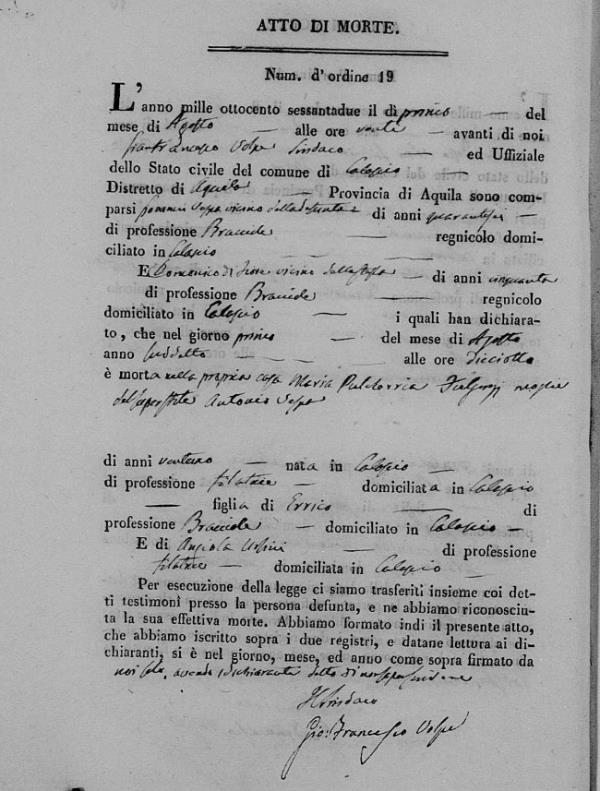 ATTO DI MORTE.
Num. d'ordine 19
L'anno mille ottocento sessantadue il dì primo — del
mese di Agosto — alle ore venti — avanti di noi
Volpe Sindaco — ed Uffiziale
dello Stato civile del comune di Calascio —
Distretto di Aquila — Provincia di Aquila sono com-
parsi Volpe vicino della defunta di anni —
di professione Bracciale — regnicolo domi-
ciliato in Calascio
E Domenico di vicino della stessa — di anni cinquanta
di professione Bracciale — regnicolo
domiciliato in Calascio — i quali han dichiara-
to, che nel giorno primo — del mese di Agosto
anno suddetto — alle ore diciotto
è morta nella propria casa Maria Fulgenzi moglie
del superstite Antonio Volpe
di anni ventuno — nata in Calascio —
di professione filatrice — domiciliata in Calascio
— figlia di Errico — di
professione Bracciale — domiciliato in Calascio —
E di Angiola Ursini — di professione
filatrice — domiciliata in Calascio —
Per esecuzione della legge ci siamo trasferiti insieme coi det-
ti testimonî presso la persona defunta, e ne abbiamo riconosciu-
ta la sua effettiva morte. Abbiamo formato indi il presente atto,
che abbiamo iscritto sopra i due registri, e datane lettura ai di-
chiaranti, si è nel giorno, mese, ed anno come sopra firmato da
noi solo, avendo i dichiaranti detto di non sapere scrivere
Il Sindaco
Gio: Francesco Volpe